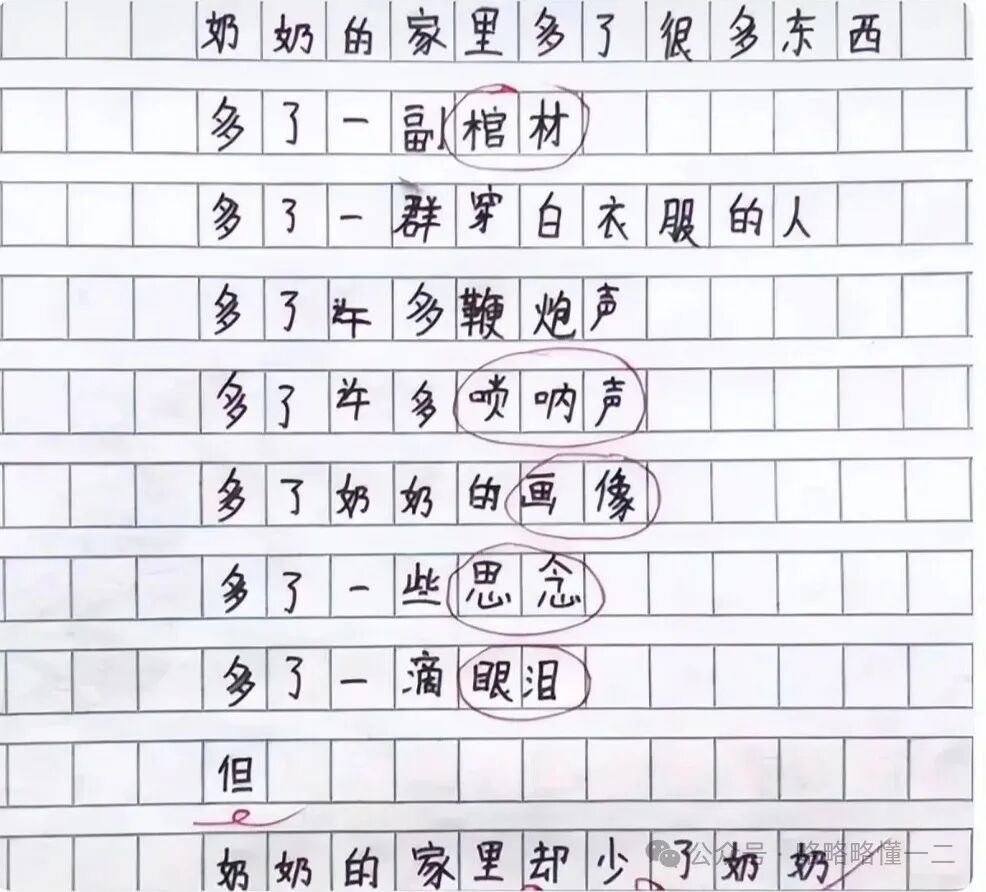 奶奶的家里多了很多东西
多了一副棺材
多了一群穿白衣服的人
多了许多鞭炮声
多了许多唢呐声
多了奶奶的画像
多了一些思念
多了一滴眼泪
但
奶奶的家里却少了奶奶
公众号·略略略懂一二